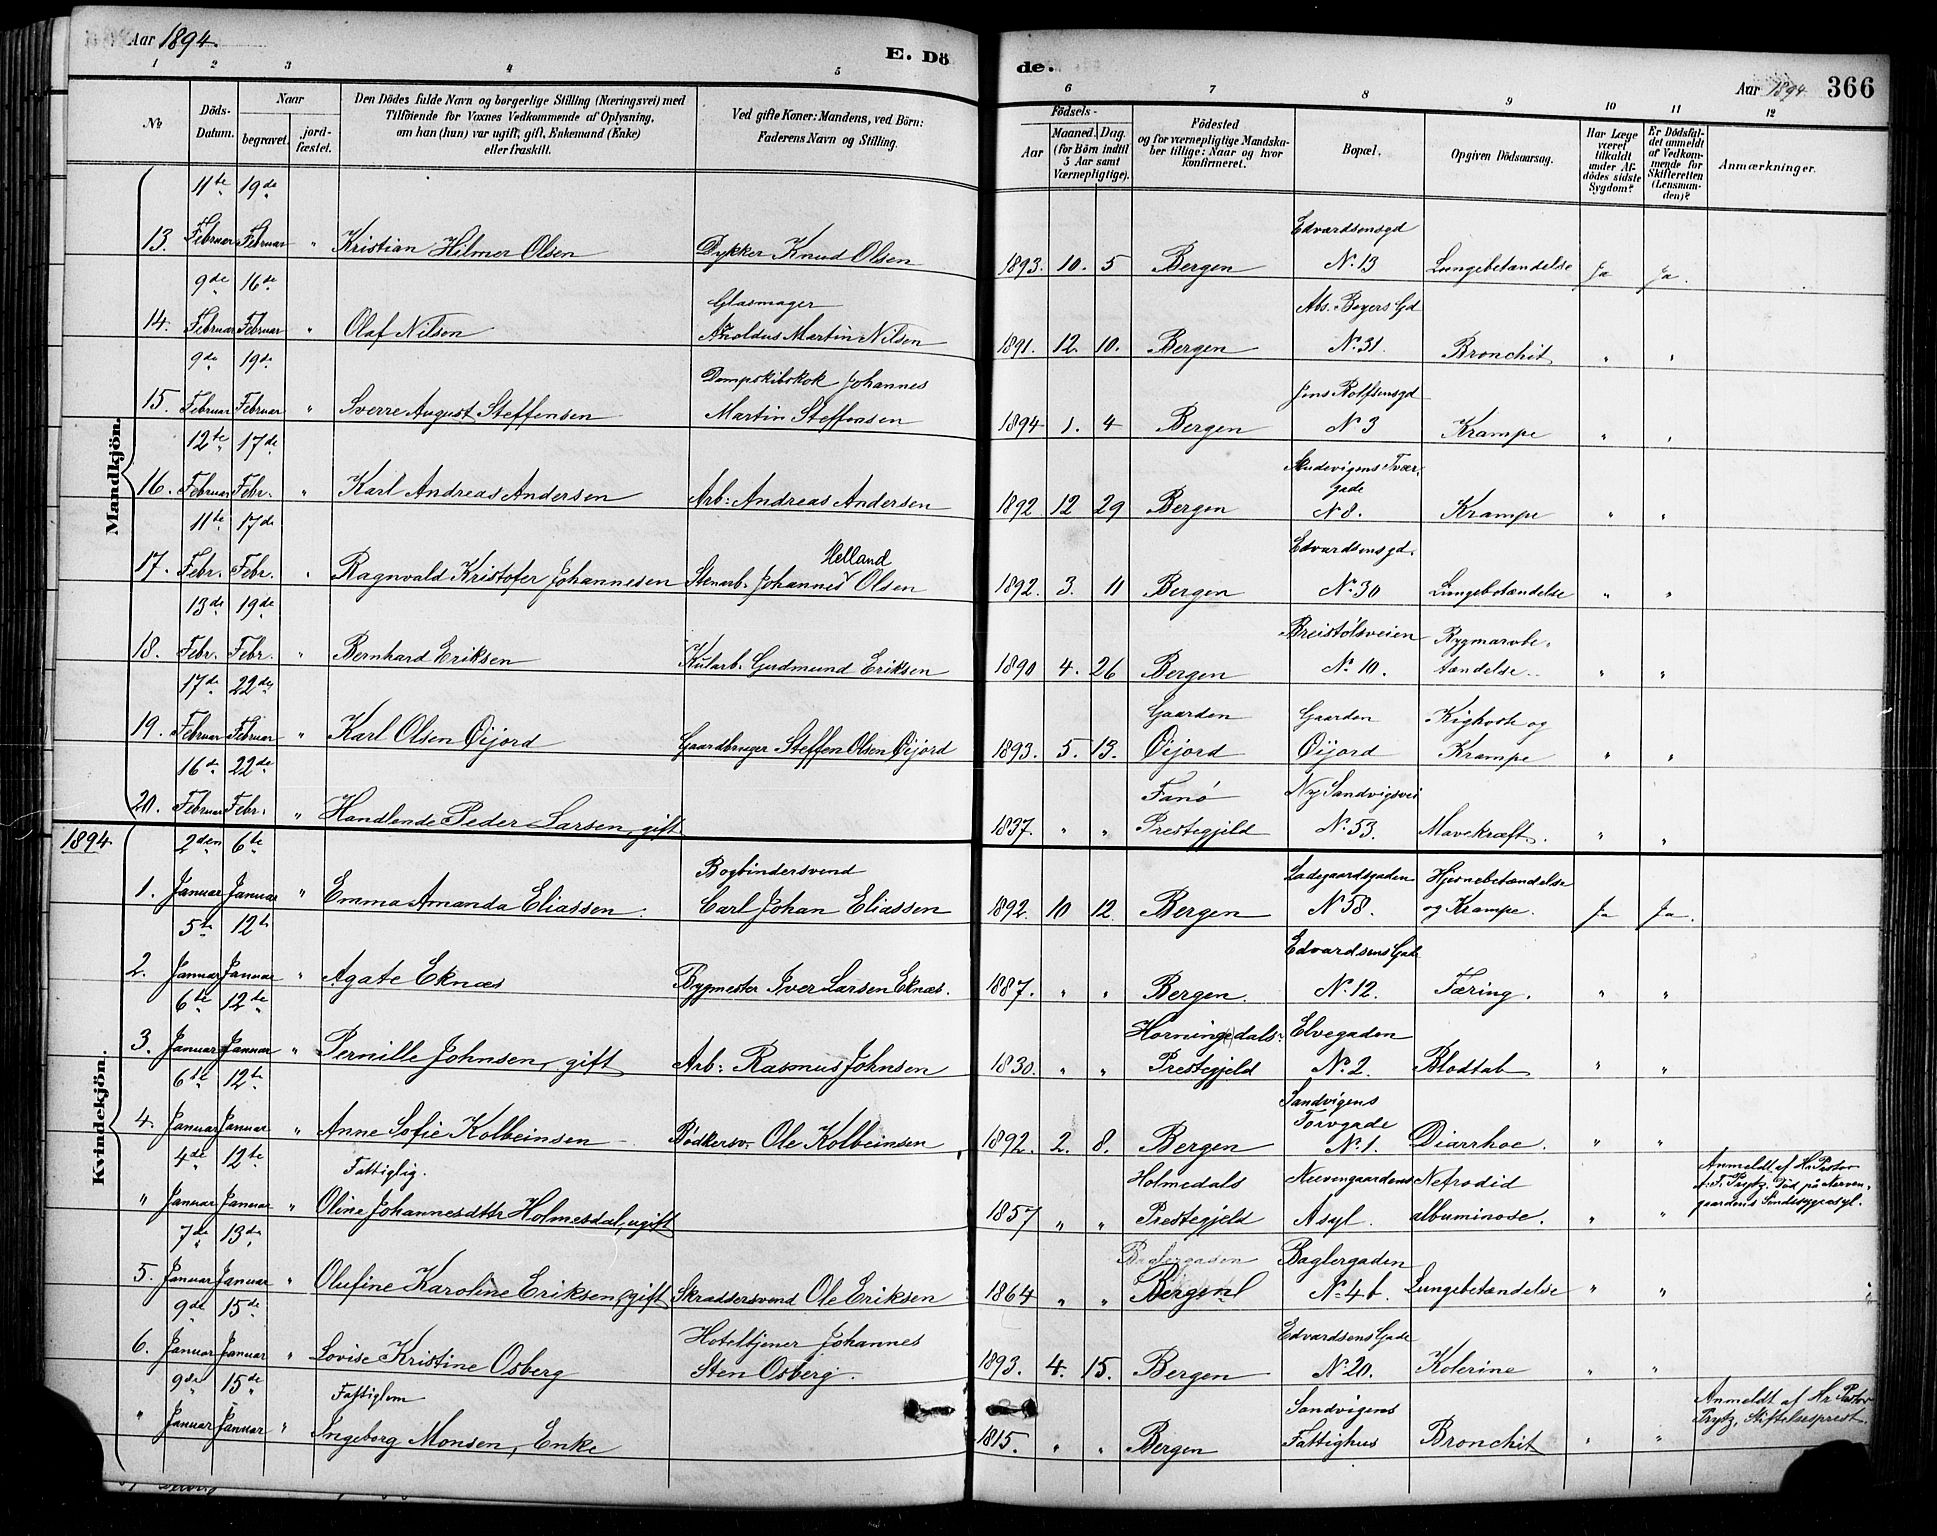 Aar 1894.
E. Dö
de.
Aar 1894. 366
1 2 3 4 5 6 7 8 9 10 11 12
№
Döds-
Datum.
Naar
begravet.
jord-
fæstet.
Den Dödes fulde Navn og borgerlige Stilling (Næringsvei) med
Tilföiende for Voxnes Vedkommende af Oplysning,
om han (hun) var ugift, gift, Enkemand (Enke)
eller fraskilt.
Ved gifte Koner: Mandens, ved Börn:
Faderens Navn og Stilling.
Födsels-
Aar
Maaned. Dag.
(for Börn indtil
5 Aar samt
Værnepligtige).
Födested
og for værnepligtige Mandska-
ber tillige: Naar og hvor
konfirmeret.
Bopæl.
Opgiven Dödsaarsag.
Har Læge
været
tilkaldt
under Af-
dödes sidste
Sygdom?
Er Dödsfal-
det anmeldt
af Vedkom-
mende for
Skifteretten
(Lensman-
den)?
Anmærkninger.
Mandkjön.
11te 19de Edvardsensgd
13. Februar Februar " Kristian Hilmer Olsen Dykker Knud Olsen 1893. 10. 5 Bergen N. 13 Lungebetændelse Ja Ja.
9de 16de Glasmager Abs. Beyers Gd
14. Februar Februar " Olaf Nilsen Arnoldus Martin Nilsen 1891. 12. 10. Bergen N. 31. Bronchit " "
9de 19de Dampskibskok Johannes Jens Rolfsensgd
15. Februar Februar " Sverre August Steffensen Martin Steffensen 1894 1. 4 Bergen N 3 Krampe " "
12te 17de Mudevigens Tvær-
gade
16. Februar Febr. " Karl Andreas Andersen Arb: Andreas Andersen 1892 12 29 Bergen N 8. Krampe " "
11te 17de Helland Edvardsensgd.
17. Febr. Febr. " Ragnvald Kristofer Johannesen Stenarb. Johannes Olsen 1892. 3. 11 Bergen N. 30 Lungebetændelse " "
13de 19de Breistølsveien Rygmarvbe-
18. Febr. Febr. " Bernhard Eriksen Kularb. Gudmund Eriksen 1890 4. 26 Bergen N. 10. tændelse " "
17de 22de Gaarden Gaarden Kighoste og
19. Februar Februar " Karl Olsen Øijord Gaardbruger Steffen Olsen Øijord 1893. 5. 13. Øijord Øijord Krampe " "
16de 22de Fanø Ny Sandvigsvei
20. Februar Febr. " Handlende Peder Larsen, gift 1837. " " Prestegjeld N. 53. Mavekræft. " "
1894.
Kvindekjön.
2den 6te Bogbindersvend Ladegaardsgaden Hjernebetændelse
1. Januar Januar " Emma Amanda Eliassen. Carl Johan Eliassen 1892. 10 12. Bergen N 58. og Krampe. Ja Ja.
5te 12te Edvardsens Gade
2. Januar Januar " Agate Eknæs Bygmester Iver Larsen Eknæs. 1887. " " Bergen. N. 12. Tæring. " "
6te 12te Horningdals- Elvegaden
3. Januar Januar " Pernille Johnsen, gift Arb: Rasmus Johnsen 1830. " " Prestegjeld N. 2. Blodtab " "
6te 12te Sandvigens
Torvgade
4. Januar Januar " Anne Sofie Kolbeinsen Bødkersv. Ole Kolbeinsen 1892. 2. 8. Bergen N. 1. Diarrhoe. " "
4de 12te Fattiglig. Holmedals Neevengaardens Nefrodid Anmeldt af Hr Pastor
" Januar Januar " Oline Johannesdttr Holmesdal, ugift 1857 " " Prestegjeld Asyl. albuminose. " " Prytz. Død på Nerven-
gaardens Sindssygeasyl.
7de 13de Baglergaden Baglergaden
5. Januar Januar " Olufine Karoline Eriksen, gift Skræddersvend Ole Eriksen 1864 " " Bergen N. 4 b. Lungebetændelse " "
9de 15de Hoteltjener Johannes Edvardsens Gade
6. Januar Januar " Lovise Kristine Osberg Sten Osberg. 1893. 4. 15. Bergen N. 20. Kolerine " "
9de 15de Fattiglem Sandvigens Anmeldt af Hr Pastor
" Januar Januar " Ingeborg Monsen, Enke 1815. " " Bergen Fattighus Bronchit " " Prytz, Stiftelsesprest.